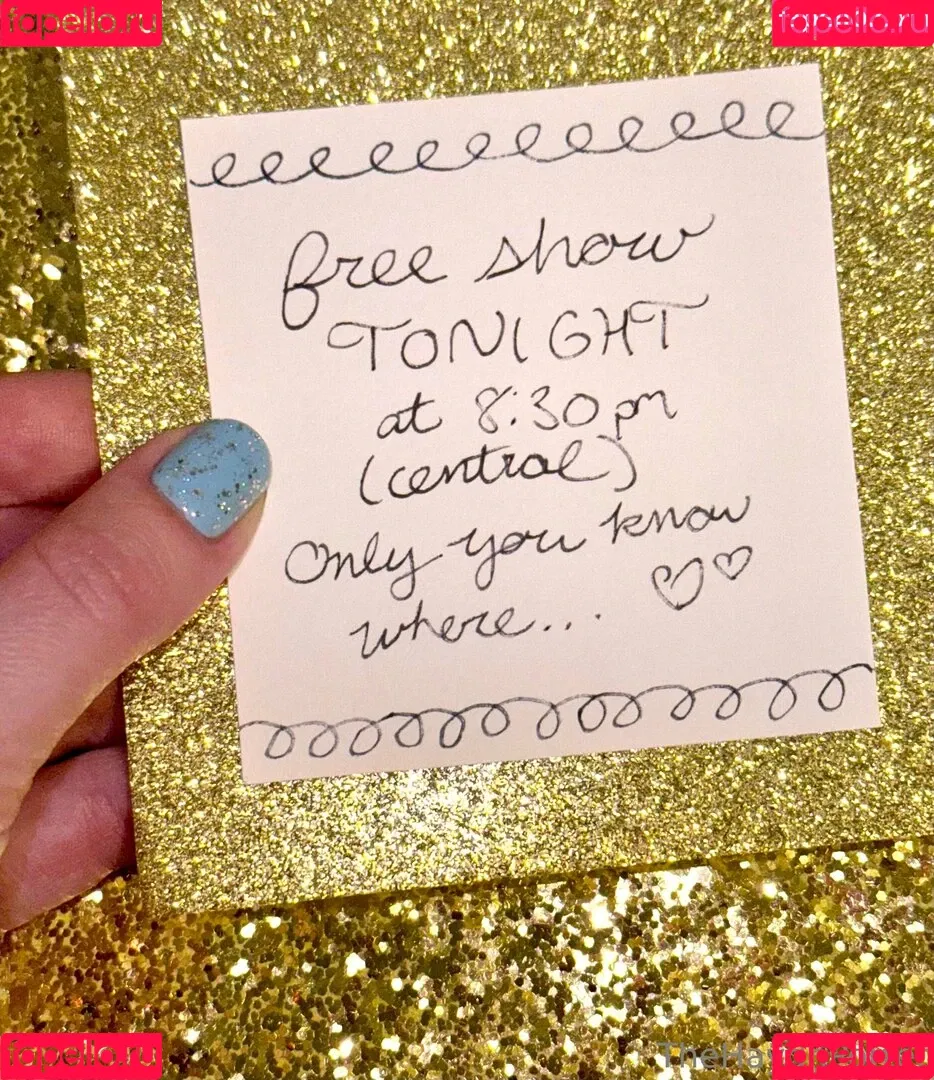 fapello.ru fapello.ru
free show
TONIGHT
at 8:30 pm
(central)
Only you know
where...
fapello.ru fapello.ru